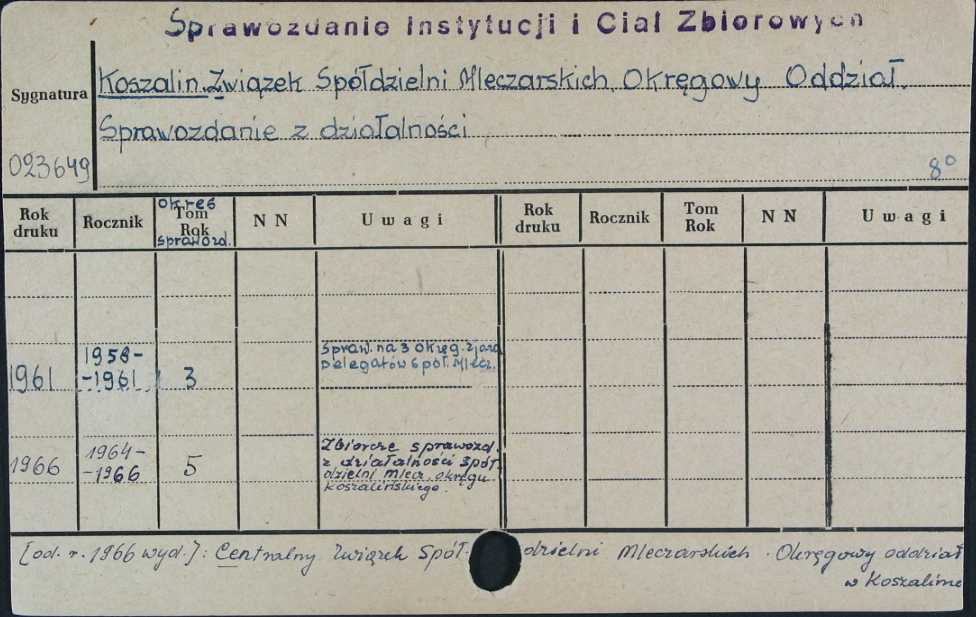 Sprawozdanie Instytucji i Ciał Zbiorowych
Sygnatura
Koszalin. Związek Spółdzielni Mleczarskich. Okręgowy Oddział.
Sprawozdanie z działalności
023649
8°
Rok druku Rocznik okres Tom Rok sprawozd. N N Uwagi Rok druku Rocznik Tom Rok N N Uwagi
1961 1958-
-1961 3 Spraw. na 3 okręg. zjazd
Delegatów Spół. Mlecz.
1966 1964-
-1966 5 Zbiorcze sprawozd.
z działalności spół-
dzielni mlecz. okręgu
koszalińskiego.
[od. r. 1966 wyd.]: Centralny Związek Spół- dzielni Mleczarskich. Okręgowy oddział
w Koszalinie